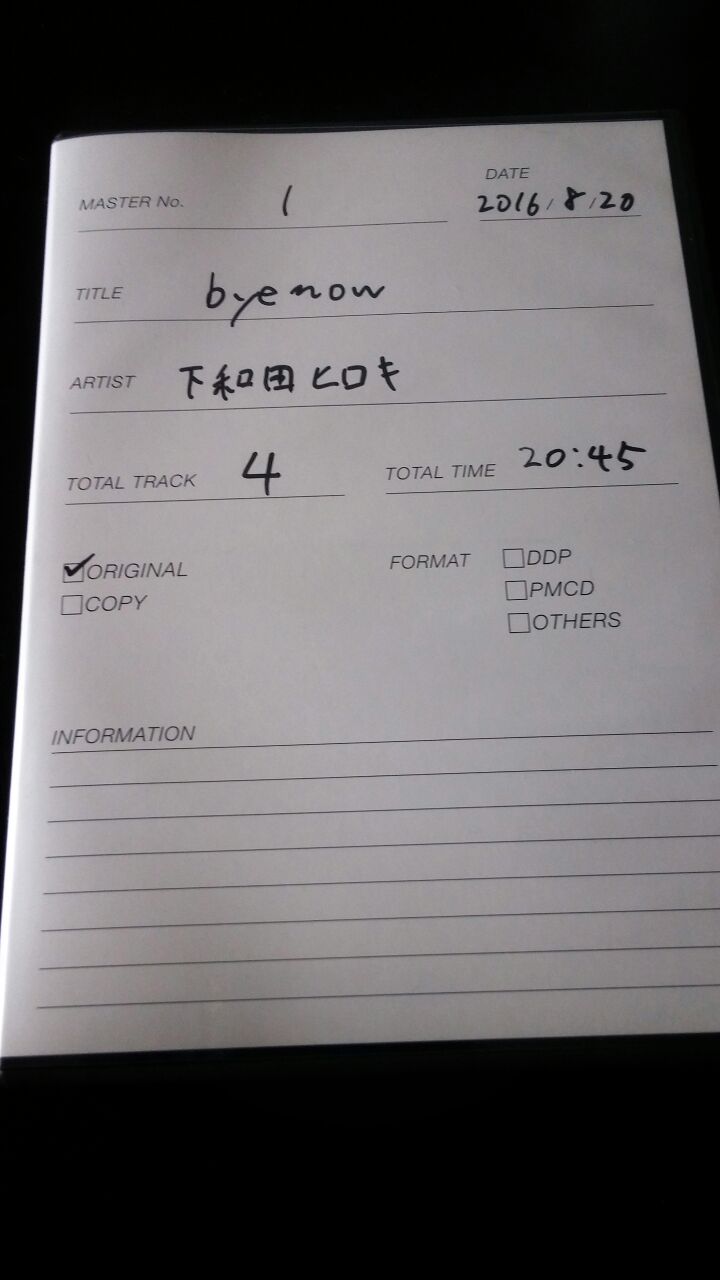 DATE
MASTER No. 1 2016/8/20
TITLE byenow
ARTIST 下和田ヒロキ
TOTAL TRACK 4 TOTAL TIME 20:45
☑ORIGINAL FORMAT ☐DDP
☐COPY ☐PMCD
☐OTHERS
INFORMATION